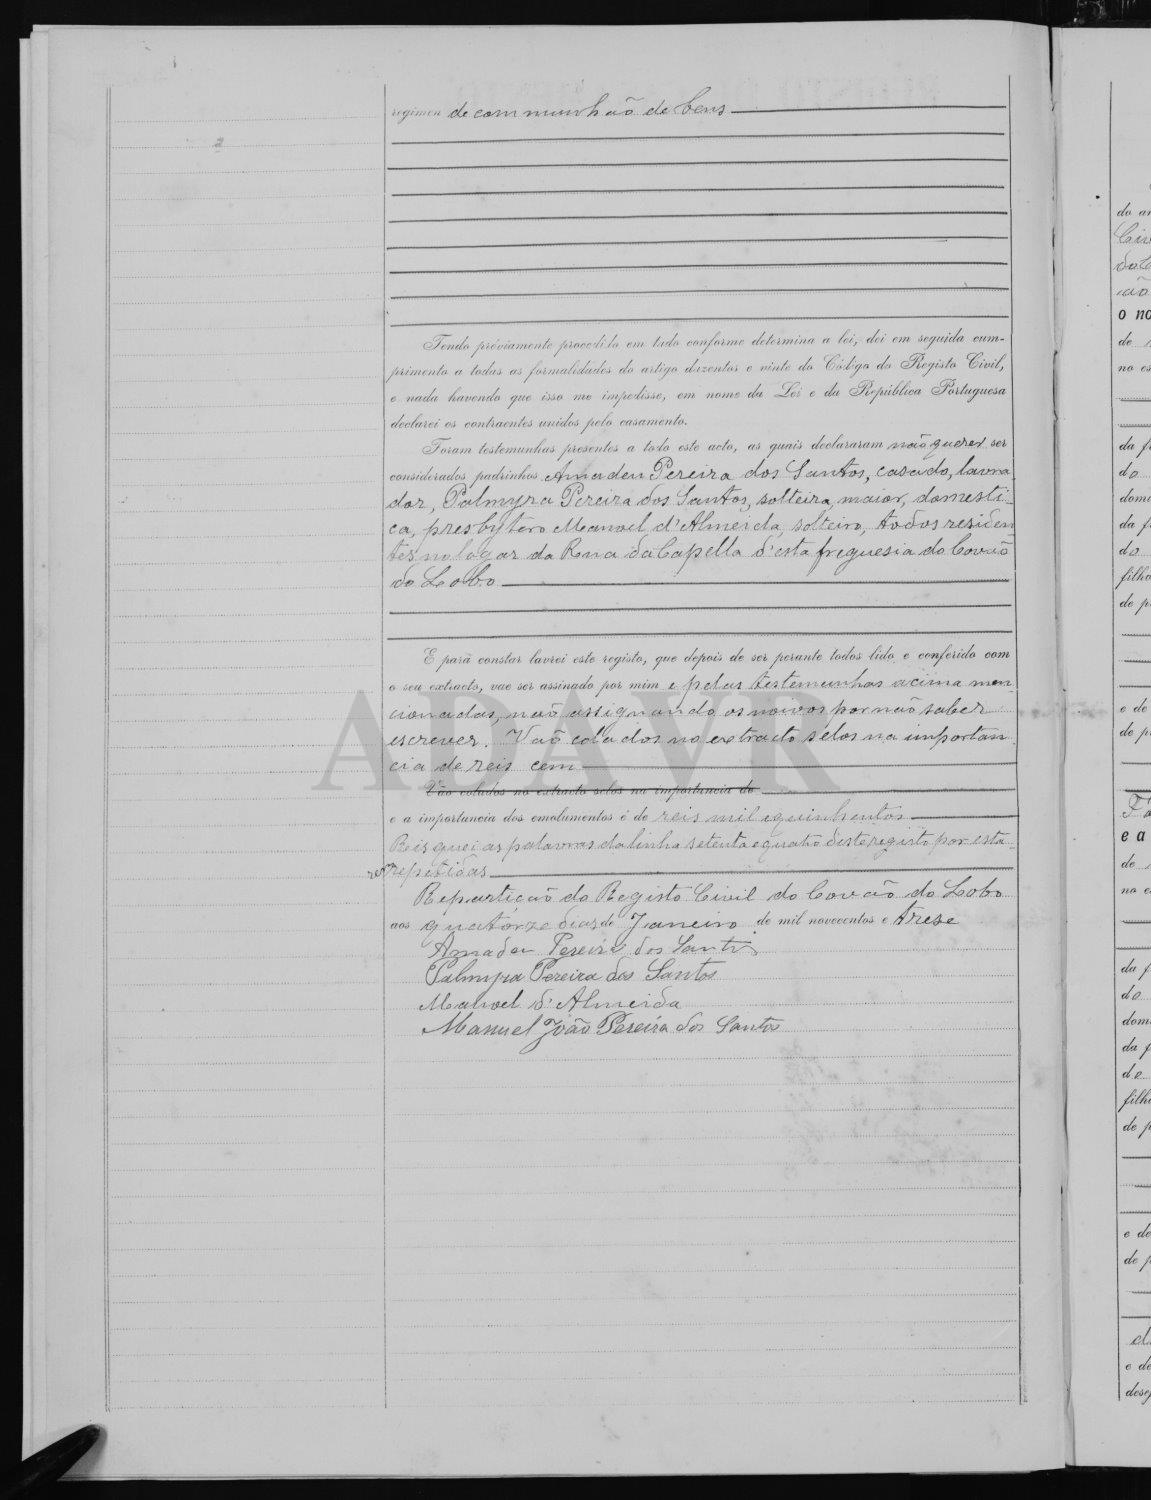 regimen de communhão de bens
Tendo préviamente procedido em tudo conforme determina a lei, dei em seguida cum-
primento a todas as formalidades do artigo duzentos e vinte do Código do Registo Civil,
e nada havendo que isso me impedisse, em nome da Lei e da República Portuguesa
declarei os contraentes unidos pelo casamento.
Foram testemunhas presentes a todo este acto, as quais declararam não querer ser
considerados padrinhos Amadeu Pereira dos Santos, casado, lavra
dor, Palmyra Pereira dos Santos, solteira, maior, domesti-
ca, presbytero Manoel d'Almeida, solteiro, todos residen
tes no logar da Rua da Capella d'esta freguesia do Covão
do Lobo
E para constar lavrei este registo, que depois de ser perante todos lido e conferido com
o seu extracto, vae ser assinado por mim e pelas testemunhas acima men-
cionadas, não assignando os noivos por não saber
escrever. Vaõ colados no extracto selos na importan
cia de reis cem
Vão colados no extracto selos na importancia de
e a importancia dos emolumentos é de reis mil e quinhentos
Risquei as palavras da linha setenta e quatro deste registo por esta-
rem repetidas
Repartição do Registo Civil do Covão do Lobo
aos quatorze dias de Janeiro de mil novecentos e trese
Amadeu Pereira dos Santos
Palmyra Pereira dos Santos
Manoel d'Almeida
Manuel João Pereira dos Santos
ADAVR